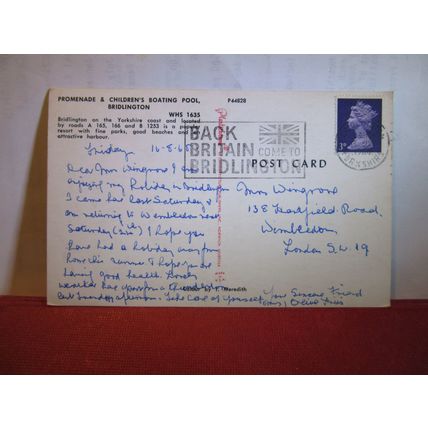 PROMENADE & CHILDREN'S BOATING POOL,
BRIDLINGTON
P44828
WHS 1635
Bridlington on the Yorkshire coast and located
by roads A 165, 166 and B 1253 is a popular
resort with fine parks, good beaches and
attractive harbour.
BACK
BRITAIN
COME TO
BRIDLINGTON
POST CARD
3D
YORKSHIRE
Friday 16-8-68
Dear Mrs Wingrove I am
enjoying my Holiday in Bridlington
I came here last Saturday &
am returning to Wimbledon next
Saturday I hope you
have had a holiday away from
Home this summer & Hope you are
having good health. Lovely
weather
afternoon. Take Care of yourself
Your Sincere Friend
Mrs Wingrove
138 Road
Wimbledon
London S.W. 19
by F. Meredith